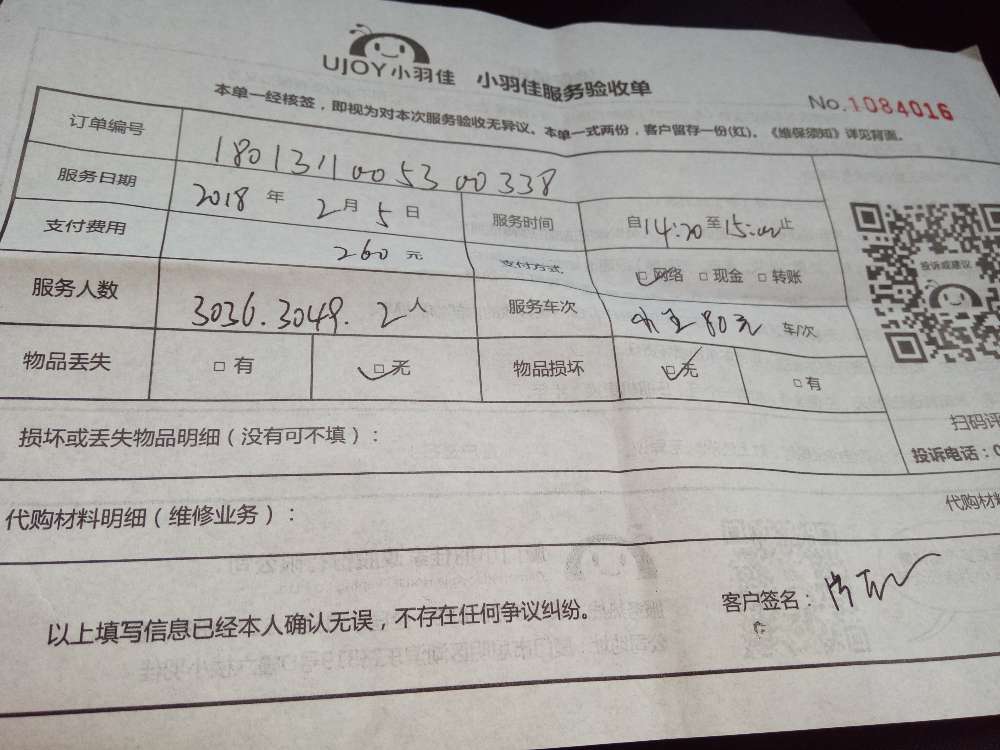 UJOY小羽佳 小羽佳服务验收单
No.1084016
本单一经核签，即视为对本次服务验收无异议。本单一式两份，客户留存一份(红)。《维保须知》详见背面。
订单编号 1801311005300338
服务日期 2018年2月5日 服务时间 自14:20至15:00止
支付费用 260元 支付方式 □网络 □现金 □转账
服务人数 3036.3049. 2人 服务车次 80元 车/次
物品丢失 □有 □无 物品损坏 □无 □有
投诉或建议
损坏或丢失物品明细（没有可不填）：
扫码评
投诉电话：0
代购材料明细（维修业务）：
代购材料
以上填写信息已经本人确认无误，不存在任何争议纠纷。
客户签名：